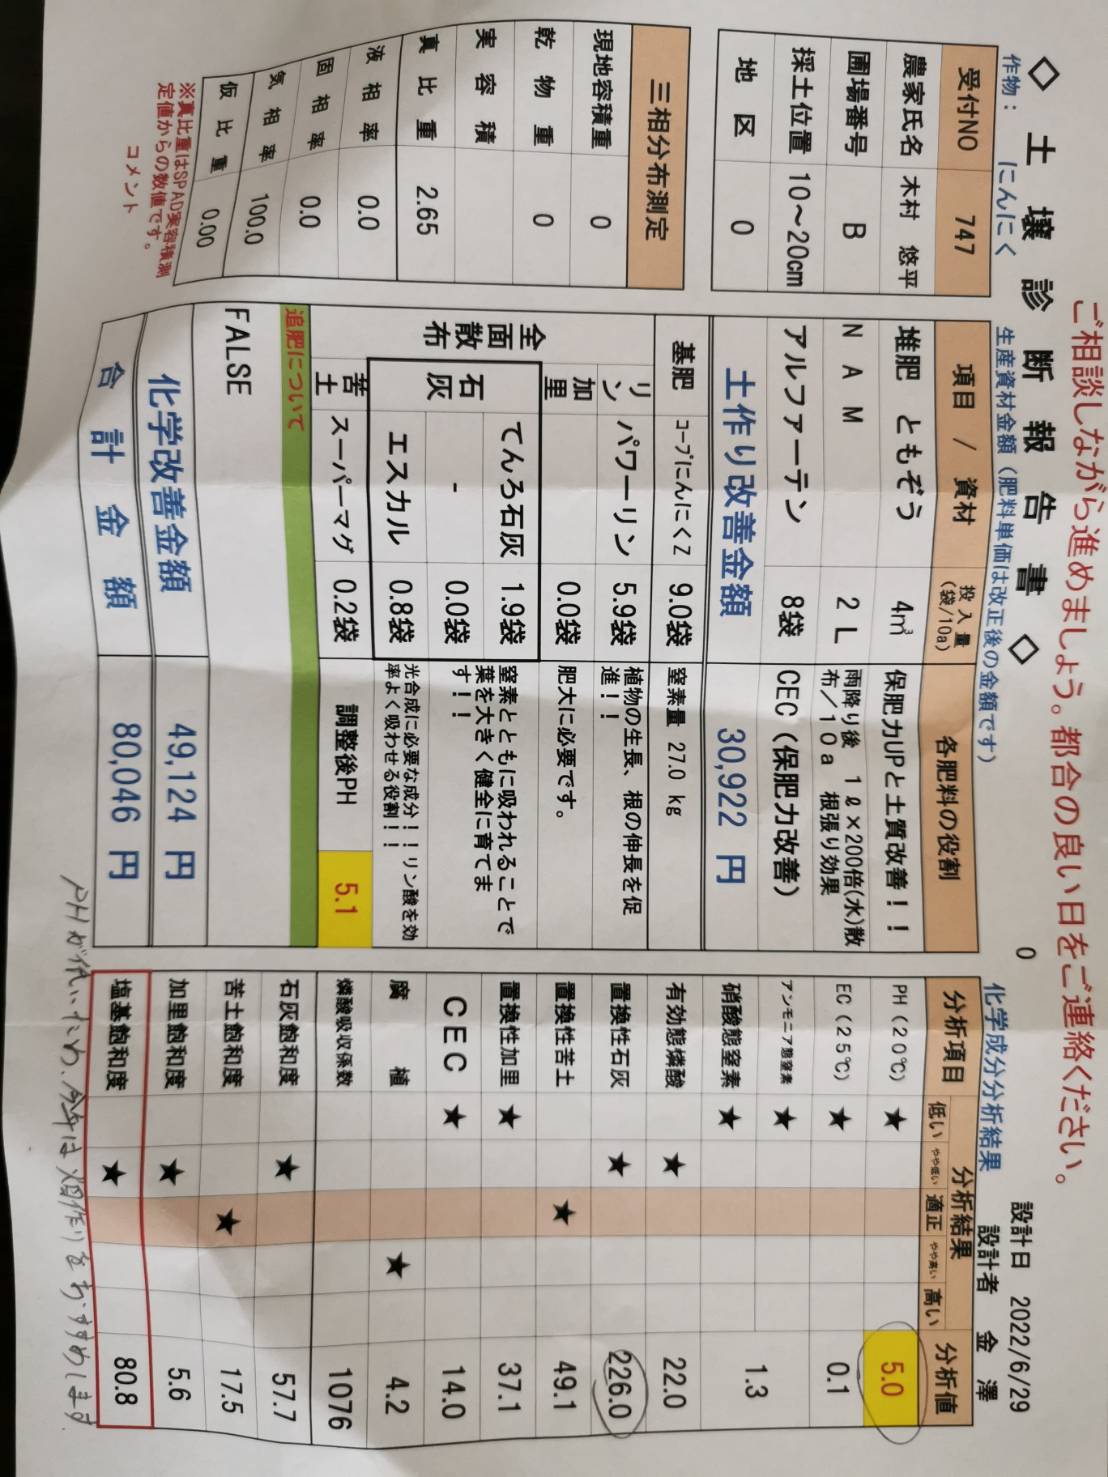 ご相談しながら進めましょう。都合の良い日をご連絡ください。
◇ 土 壌 診 断 報 告 書 ◇
0
設計日 2022/6/29
設計者 金 澤
作物： にんにく
受付NO 747
農家氏名 木村 悠平
圃場番号 B
採土位置 10～20cm
地区 0
三相分布測定
現地容積重 0
乾物重 0
実容積
真比重 2.65
液相率 0.0
固相率 0.0
気相率 100.0
仮比重 0.00
※真比重はSPAD実容積測
定値からの数値です。
コメント
生産資材金額（肥料単価は改正後の金額です）
項目 / 資材 投入量(袋/10a) 各肥料の役割
堆肥 ともぞう 4㎥ 保肥力UPと土質改善！！
ＮＡＭ 2 L 雨降り後 1ℓ×200倍(水)散布／10a 根張り効果
アルファーテン 8袋 CEC（保肥力改善）
土作り改善金額 30,922 円
基肥 ｺｰﾌﾟにんにくZ 9.0袋 窒素量 27.0 kg
全面散布
リン パワーリン 5.9袋 植物の生長、根の伸長を促進！！
加里 0.0袋 肥大に必要です。
石灰 てんろ石灰 1.9袋 窒素とともに吸われることで葉を大きく健全に育てます！！
- 0.0袋
エスカル 0.8袋 光合成に必要な成分！！リン酸を効率よく吸わせる役割！！
苦土 スーパーマグ 0.2袋 調整後PH 5.1
追肥について
FALSE
化学改善金額 49,124 円
合計金額 80,046 円
化学成分分析結果
分析項目 分析結果 分析値
低い やや低い 適正 やや高い 高い
PH（20℃） ★ 5.0
EC（25℃） ★ 0.1
アンモニア態窒素 ★
硝酸態窒素 ★ 1.3
有効態燐酸 ★ 22.0
置換性石灰 ★ 226.0
置換性苦土 ★ 49.1
置換性加里 ★ 37.1
CEC ★ 14.0
腐植 ★ 4.2
燐酸吸収係数 1076
石灰飽和度 ★ 57.7
苦土飽和度 ★ 17.5
加里飽和度 ★ 5.6
塩基飽和度 ★ 80.8
PHが低いため、今年は畑作りをおすすめします